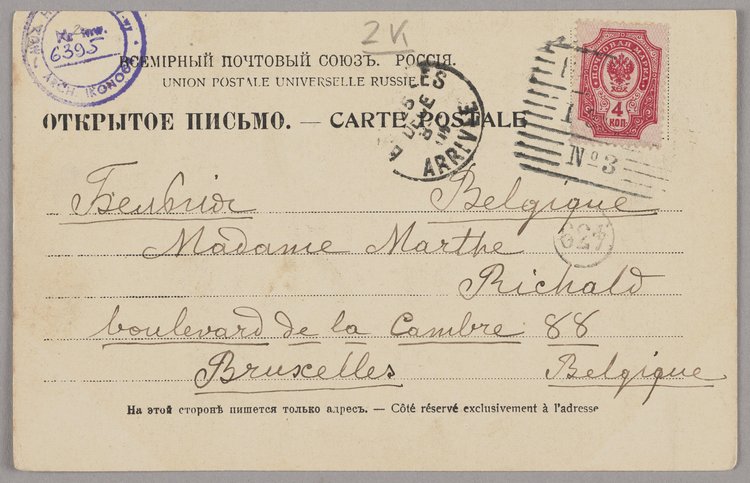 2K
6395
ARCH. IKONOGR.
ВСЕМІРНЫЙ ПОЧТОВЫЙ СОЮЗЪ. РОССІЯ.
UNION POSTALE UNIVERSELLE RUSSIE
ОТКРЫТОЕ ПИСЬМО. — CARTE POSTALE
ARRIVÉE
ПОЧТОВАЯ МАРКА
4
КОП.
№3
Бельгія Belgique
629
Madame Marthe
Richald
boulevard de la Cambre 88
Bruxelles Belgique
На этой сторонѣ пишется только адресъ. — Côté réservé exclusivement à l'adresse